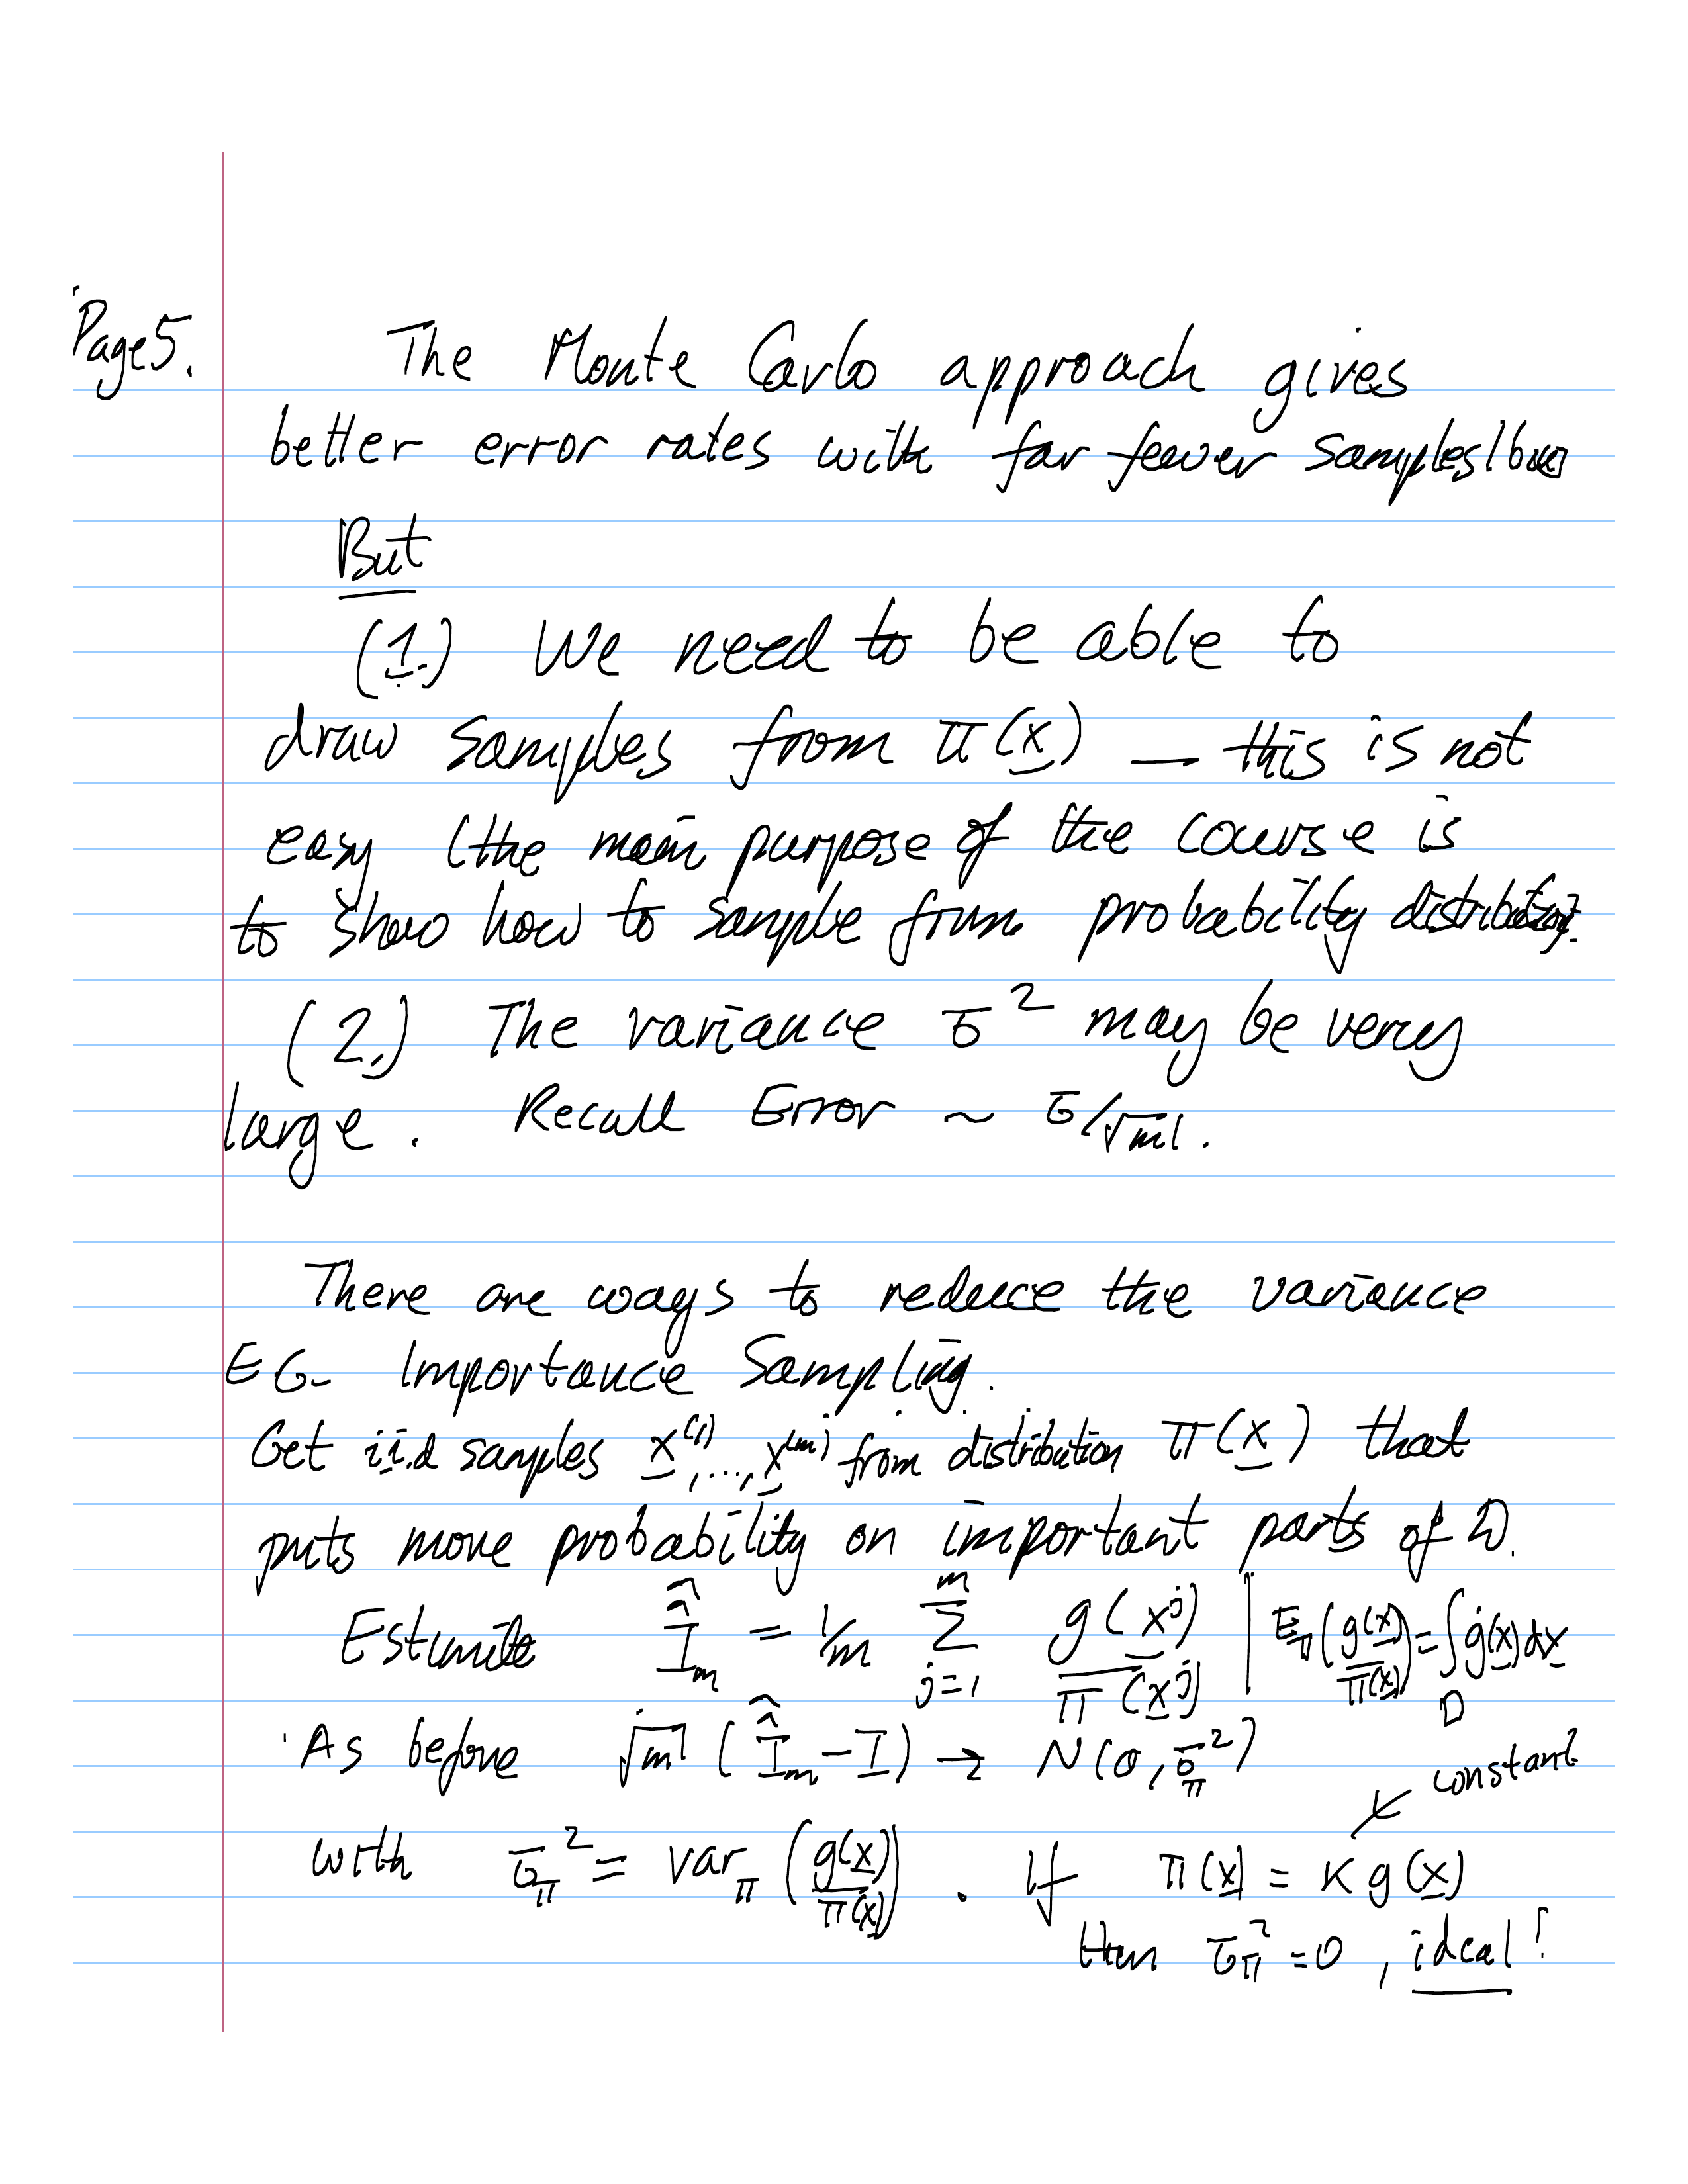 Page 5. The Monte Carlo approach gives
better error rates with far fewer samples/boxes
But
(1.) We need to be able to
draw samples from π(x) — this is not
easy (the main purpose of the course is
to show how to sample from probability distributions.
(2.) The variance σ² may be very
large. Recall Error ~ σ/√m.
There are ways to reduce the variance
EG. Importance Sampling.
Get i.i.d samples x⁽¹⁾, ..., x⁽ᵐ⁾ from distribution π(x) that
puts more probability on important parts of D.
Estimate Î̂ₘ = 1/m Σ_{j=1}^{m} g(xʲ)/π(xʲ) | E_π(g(x)/π(x)) = ∫_D g(x) dx
As before √m (Î̂ₘ − I) → N(0, σ_π²)
constant
with σ_π² = var_π (g(x)/π(x)). If π(x) = K g(x)
then σ_π² = 0, ideal!